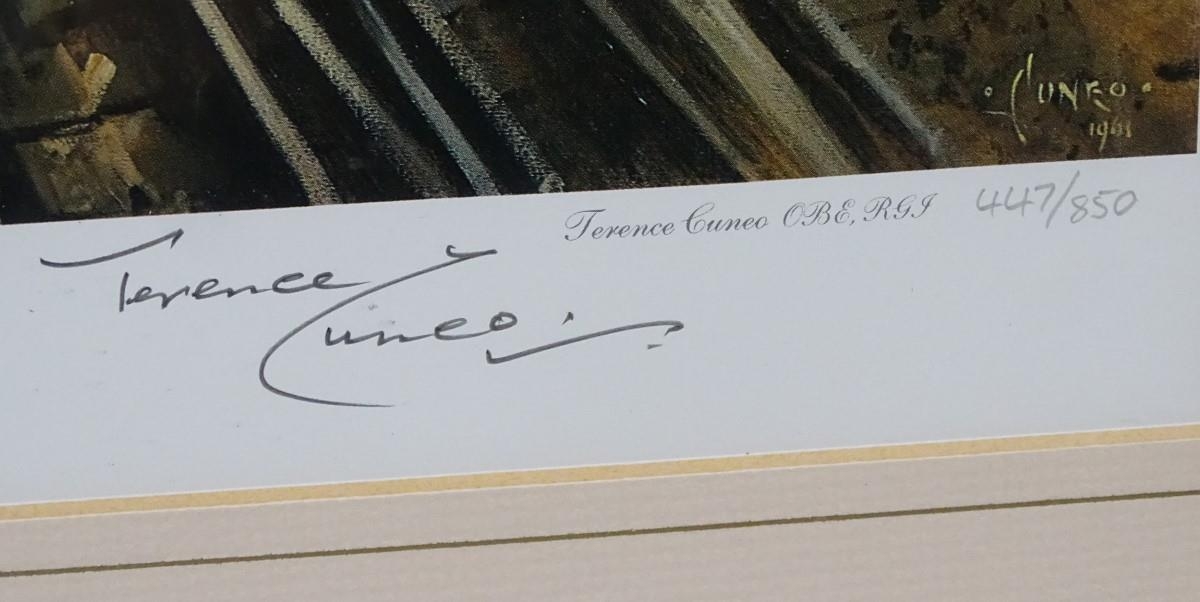 CUNEO
1961
Terence Cuneo OBE, RGI 447/850
Terence
Cuneo